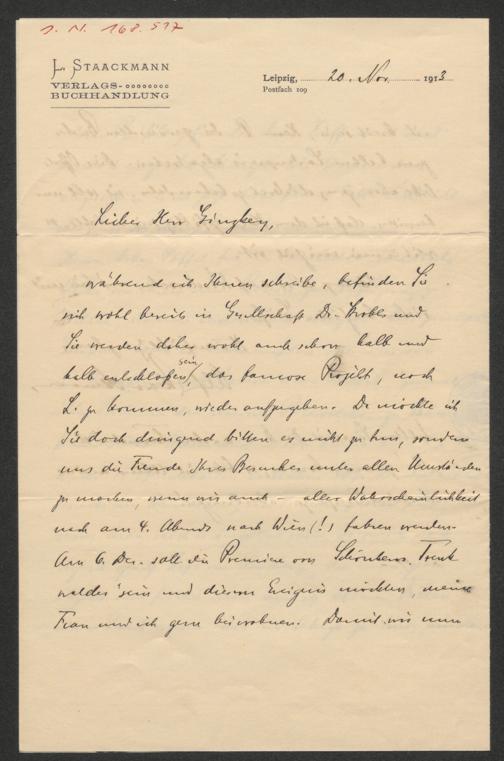 J. N. 168.517
L. STAACKMANN
VERLAGS-
BUCHHANDLUNG
Leipzig, 20. Nov. 1913
Postfach 109
Lieber Herr Ginzkey,
während ich Ihnen schreibe, befinden Sie
sich wohl bereits in Gesellschaft Dr. Strobls und
Sie werden daher wohl auch schon halb und
halb entschlossen sein, das famose Projekt, nach
L. zu kommen, wieder aufzugeben. Da möchte ich
Sie doch dringend bitten es nicht zu tun, sondern
uns die Freude Ihres Besuches unter allen Umständen
zu machen, wenn wir auch – aller Wahrscheinlichkeit
nach am 4. Abends nach Wien (!) fahren werden.
Am 6. Dez. soll die Premiere von Schönherrs "Trenk
walder" sein und diesem Ereignis möchten meine
Frau und ich gern beiwohnen. Damit wir nun